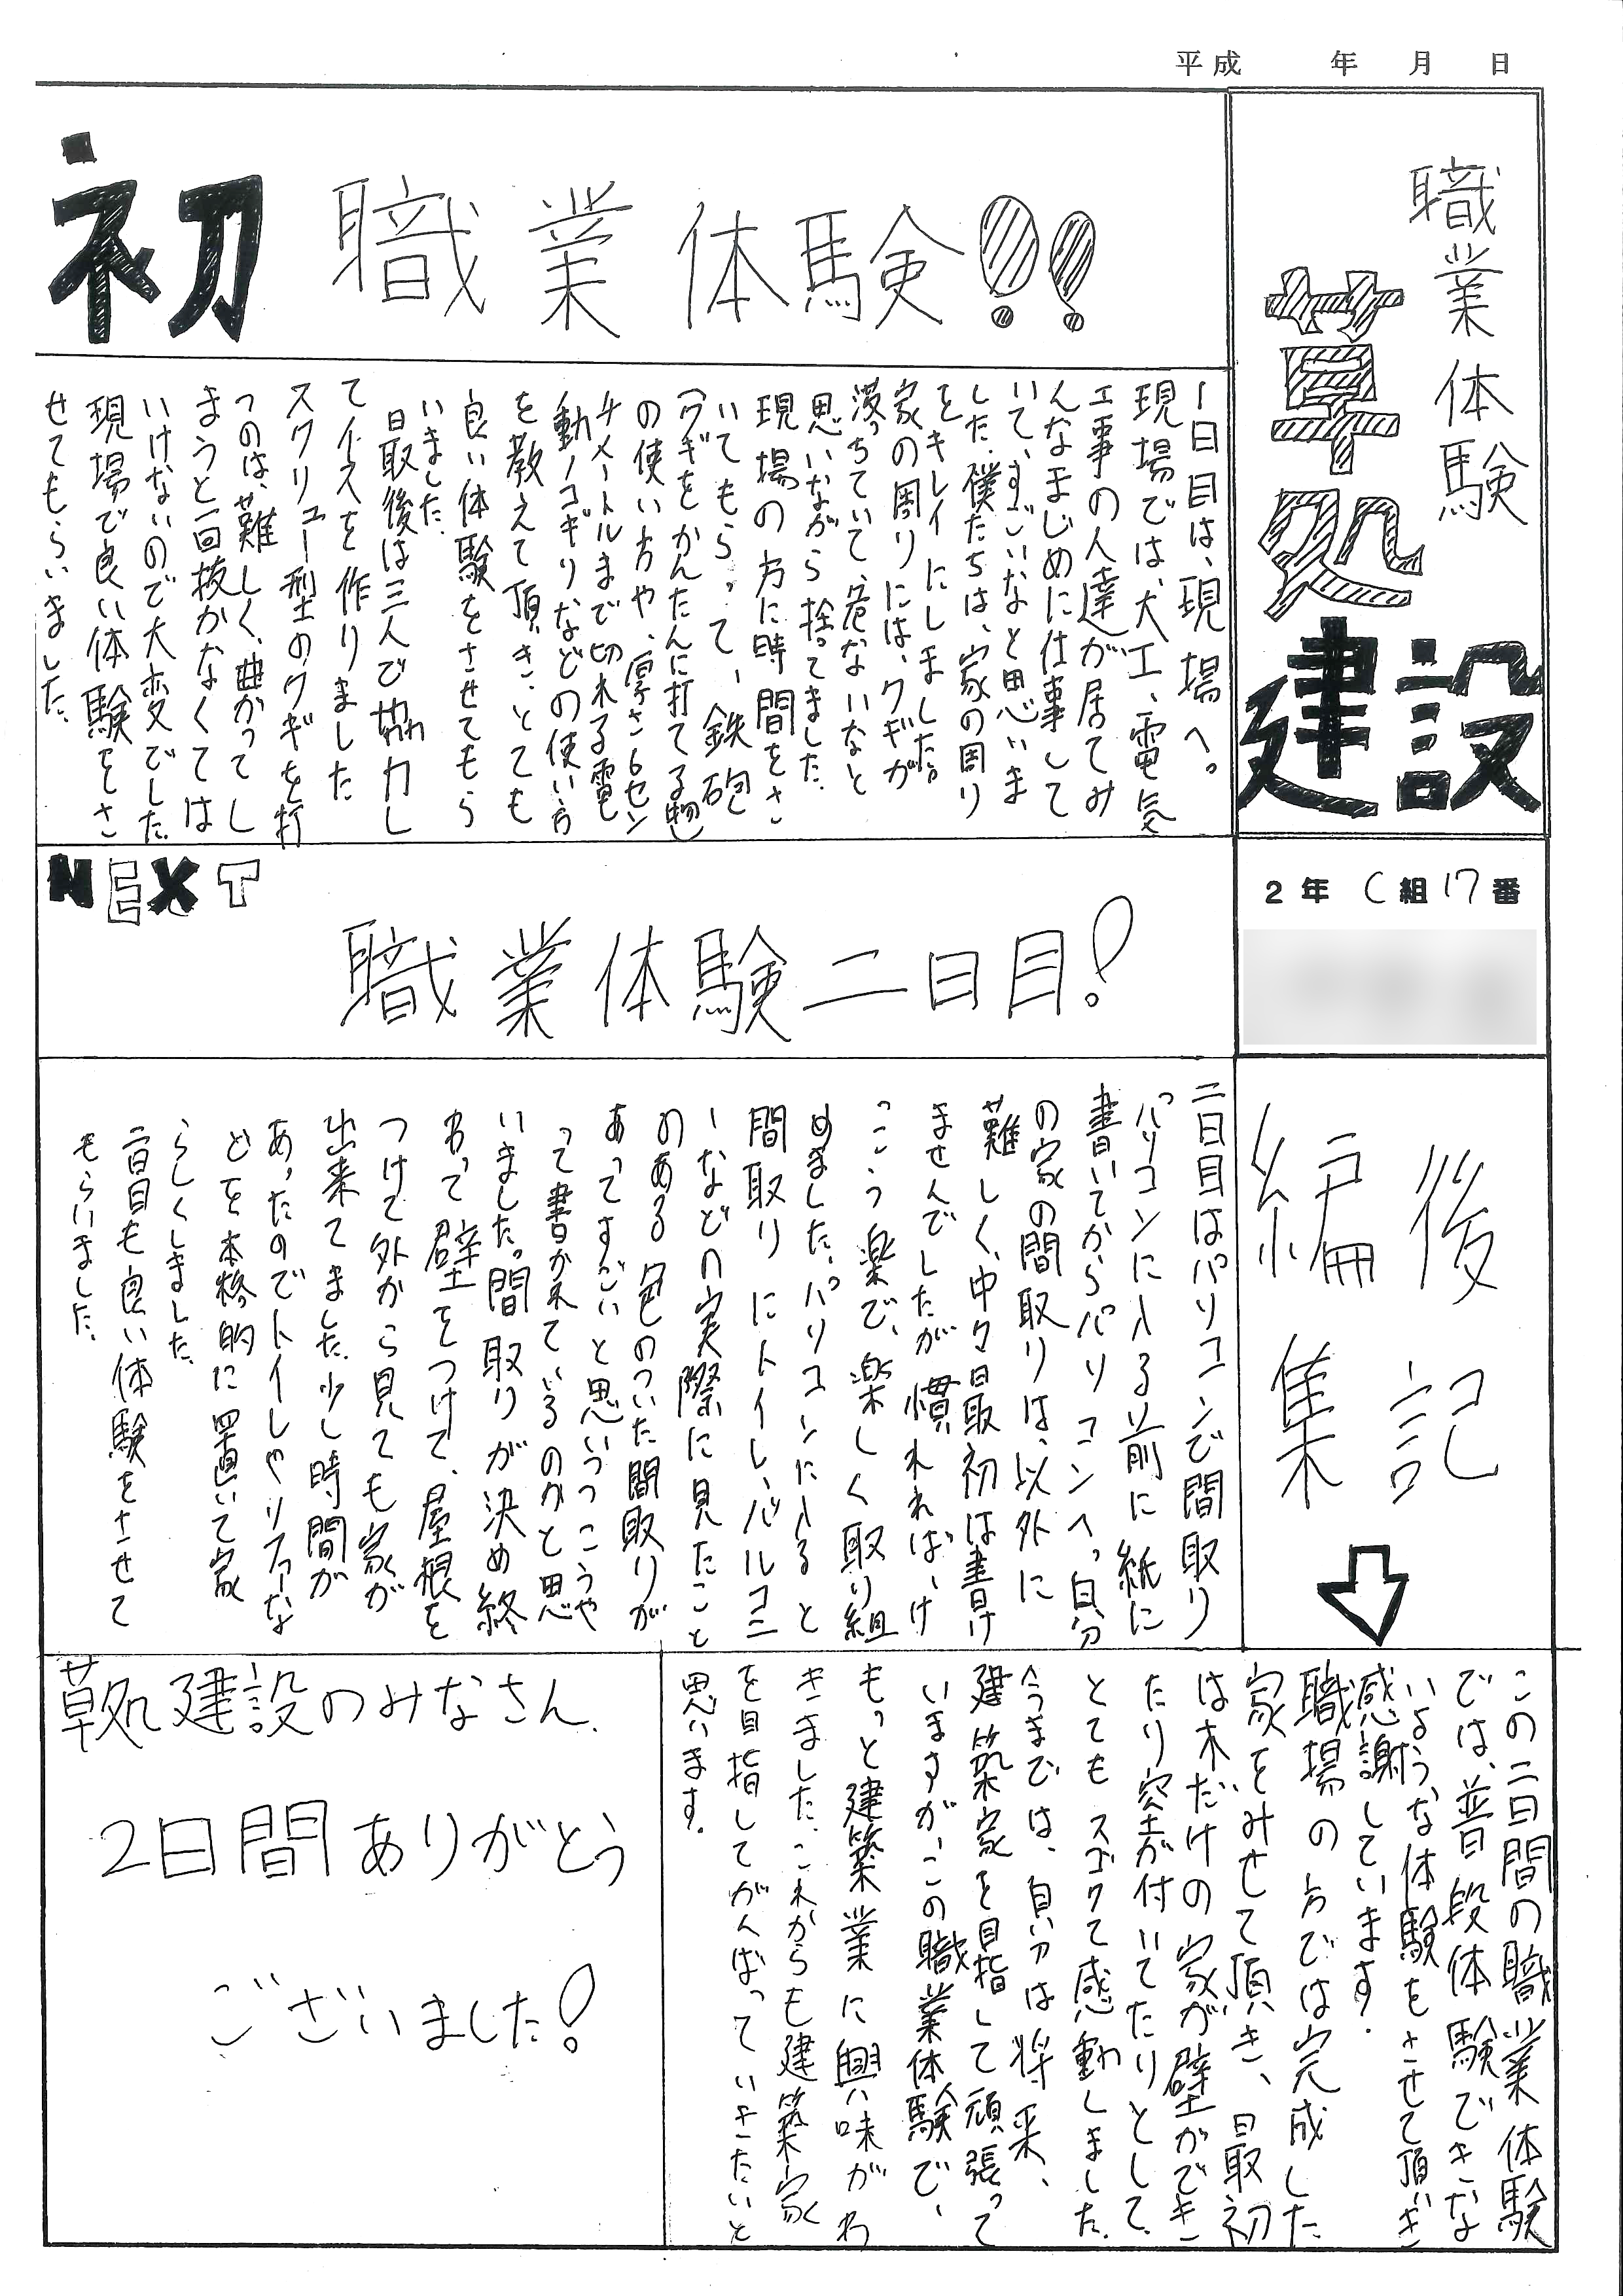 平成　年　月　日
職業体験
草処
建設
2年 C組17番
初職業体験!!
1日目は、現場へ。
現場では、大工、電気
工事の人達が居てみ
んなまじめに仕事して
いて、すごいなと思いま
した。僕たちは、家の周り
をキレイにしました。
家の周りには、クギが
落っちていて、危ないなと
思いながら捨ってました。
現場の方に時間をさ
いてもらって、鉄砲
(クギをかんたんに打てる物)
の使い方や、厚さ6セン
チメートルまで切れる電
動ノコギリなどの使い方
を教えて頂き、とても
良い体験をさせてもら
いました。
最後は三人で協力し
てイスを作りました
スクリュー型のクギを打
つのは、難しく、曲がってし
まうと一回抜かなくては
いけないので大変でした。
現場で良い体験をさ
せてもらいました。
NEXT
職業体験二日目!
二日目はパソコンで間取り
パソコンに入る前に紙に
書いてからパソコンへ。自分
の家の間取りは、以外に
難しく、中々最初は書け
ませんでしたが慣れれば、け
っこう楽で、楽しく取り組
めました。パソコンに入ると
間取りにトイレ、バルコニ
ーなどの実際に見たこと
のある色のついた間取りが
あってすごいと思いつつこうや
って書かれているのかと思
いました。間取りが決め終
わって壁をつけて、屋根を
つけて外から見ても家が
出来てました。少し時間が
あったのでトイレやソファーな
どを本格的に置いて家
らしくしました。
二日目も良い体験をさせて
もらいました。
編集
後記
この二日間の職業体験
では、普段体験できな
いような体験をさせて頂き
感謝しています。
職場の方では完成した
家をみせて頂き、最初
は木だけの家が壁ができ
たり窓が付いてたりとして
とてもスゴクて感動しました。
今までは、自分は将来、
建築家を目指して頑張って
いますが、この職業体験で、
もっと建築業に興味がわ
きました。これからも建築家
を目指してがんばっていきたいと
思います。
草処建設のみなさん。
2日間ありがとう
ございました!